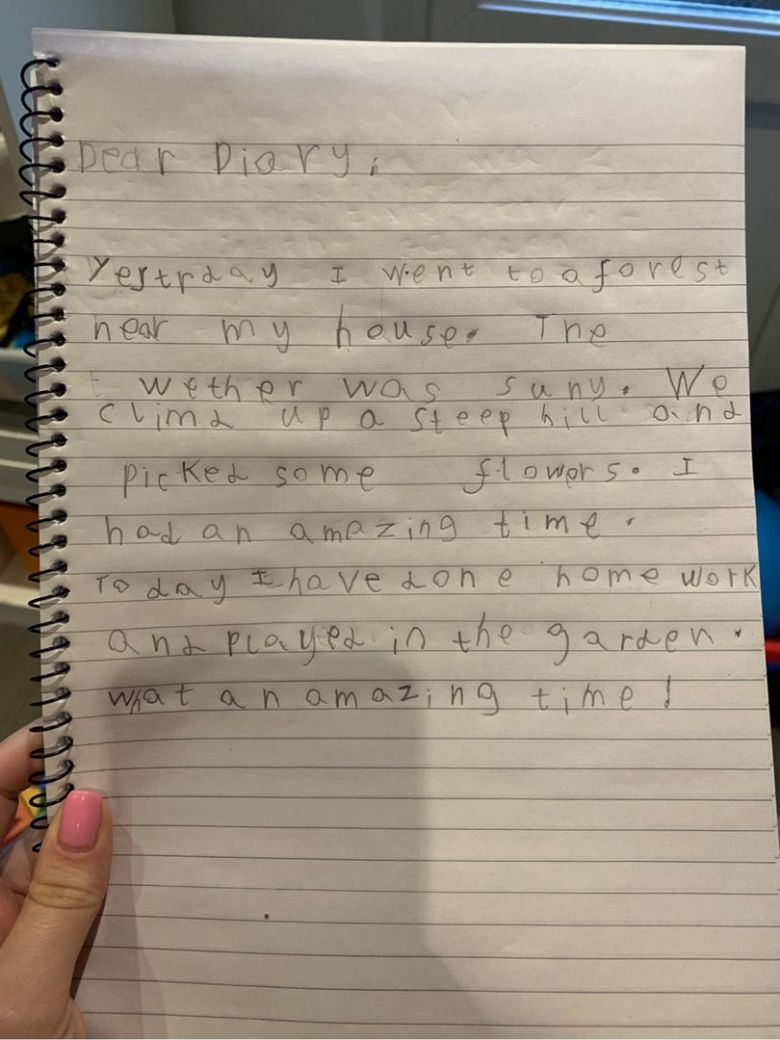 Dear Diary,
Yestrday I went to a forest
near my house. The
wether was suny. We
climd up a steep hill and
picked some flowers. I
had an amazing time.
Today I have done home work
and played in the garden.
what an amazing time!